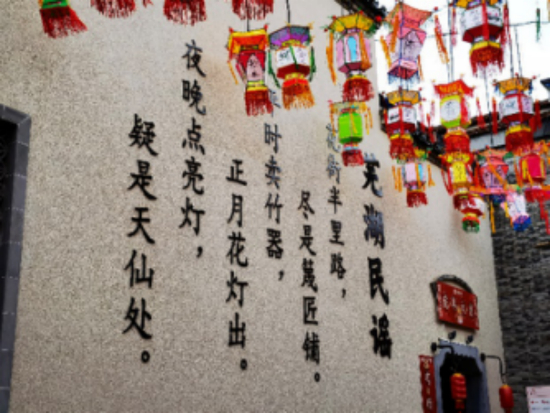 芜湖民谣
花街半里路，
尽是篾匠铺。
时卖竹器，
正月花灯出。
夜晚点亮灯，
疑是天仙处。